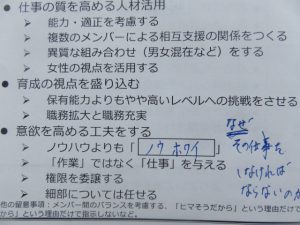 ● 仕事の質を高める人材活用
➢ 能力・適正を考慮する
➢ 複数のメンバーによる相互支援の関係をつくる
➢ 異質な組み合わせ（男女混在など）をする
➢ 女性の視点を活用する
● 育成の視点を盛り込む
➢ 保有能力よりもやや高いレベルへの挑戦をさせる
➢ 職務拡大と職務充実
● 意欲を高める工夫をする
➢ ノウハウよりも「ノウ ホワイ」
➢ 「作業」ではなく「仕事」を与える
➢ 権限を委譲する
➢ 細部については任せる
なぜ
その仕事を
しなければ
ならないのか
他の留意事項：メンバー間のバランスを考慮する、「ヒマそうだから」という理由だけで
だから」という理由だけで指示しないなど。